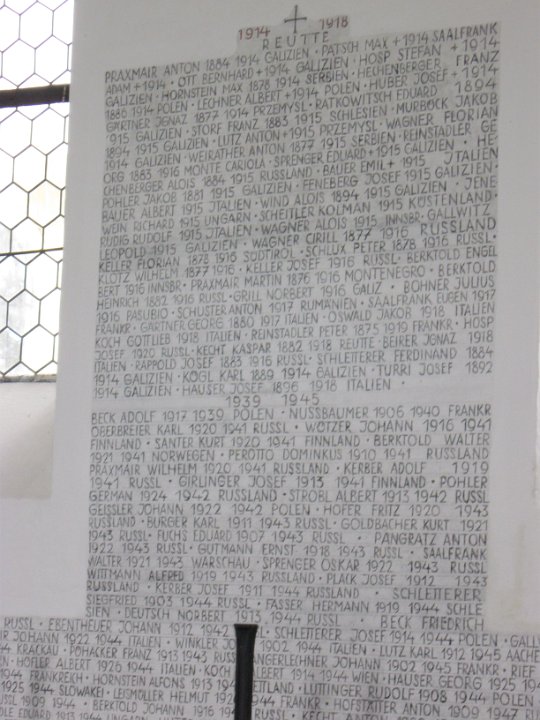 1914 1918
REUTTE
PRAXMAIR ANTON 1884 1914 GALIZIEN · PATSCH MAX + 1914 SAALFRANK
ADAM +1914 · OTT BERNHARD +1914 GALIZIEN · HOSP STEFAN + 1914
GALIZIEN · HORNSTEIN MAX 1878 1914 SERBIEN · HECHENBERGER FRANZ
1886 1914 POLEN · LECHNER ALBERT +1914 POLEN · HUBER JOSEF + 1914
GÄRTNER JGNAZ 1877 1914 PRZEMYSL · RATKOWITSCH EDUARD 1894
1915 GALIZIEN · STORF FRANZ 1883 1915 SCHLESIEN · MURBÖCK JAKOB
1894 1915 GALIZIEN · LUTZ ANTON +1915 PRZEMYSL · WAGNER FLORIAN
1914 GALIZIEN · WEIRATHER ANTON 1877 1915 SERBIEN · REINSTADLER GE
ORG 1883 1916 MONTE CARIOLA · SPRENGER EDUARD +1915 GALIZIEN · HE
CHENBERGER ALOIS 1884 1915 RUSSLAND · BAUER EMIL + 1915 JTALIEN
POHLER JAKOB 1881 1915 GALIZIEN · FENEBERG JOSEF 1915 GALIZIEN
BAUER ALBERT 1915 JTALIEN · WIND ALOIS 1894 1915 GALIZIEN · JENE
WEIN RICHARD 1915 UNGARN · SCHEITLER KOLMAN 1915 KÜSTENLAND
RUDIG RUDOLF 1915 JTALIEN · WAGNER ALOIS 1915 INNSBR · GALLWITZ
LEOPOLD 1915 GALIZIEN · WAGNER CIRILL 1877 1916 RUSSLAND
KELLER FLORIAN 1878 1916 SÜDTIROL · SCHLUX PETER 1878 1916 RUSSL ·
KLOTZ WILHELM 1877 1916 · KELLER JOSEF 1916 RUSSL · BERKTOLD ENGEL
BERT 1916 INNSBR · PRAXMAIR MARTIN 1876 1916 MONTENEGRO · BERKTOLD
HEINRICH 1882 1916 RUSSL · GRILL NORBERT 1916 GALIZ · BÖHNER JULIUS
1916 PASUBIO · SCHUSTER ANTON 1917 RUMÄNIEN · SAALFRANK EUGEN 1917
FRANKR · GÄRTNER GEORG 1880 1917 ITALIEN · OSWALD JAKOB 1918 ITALIEN
KOCH GOTTLIEB 1918 ITALIEN · REINSTADLER PETER 1875 1919 FRANKR · HOSP
JOSEF 1920 RUSSL · KECHT KASPAR 1882 1918 REUTTE · BEIRER JGNAZ 1918
ITALIEN · RAPPOLD JOSEF 1883 1916 RUSSL · SCHLEITERER FERDINAND 1884
1914 GALIZIEN · KÖGL KARL 1889 1914 GALIZIEN · TURRI JOSEF 1892
1914 GALIZIEN · HAUSER JOSEF 1896 1918 ITALIEN ·
1939 1945
BECK ADOLF 1917 1939 POLEN · NUSSBAUMER 1906 1940 FRANKR
OBERBREIER KARL 1920 1941 RUSSL · WÖTZER JOHANN 1916 1941
FINNLAND · SANTER KURT 1920 1941 FINNLAND · BERKTOLD WALTER
1921 1941 NORWEGEN · PEROTTO DOMINKUS 1910 1941 RUSSLAND
PRAXMAIR WILHELM 1920 1941 RUSSLAND · KERBER ADOLF 1919
1941 RUSSL · GIRLINGER JOSEF 1913 1941 FINNLAND · POHLER
GERMAN 1924 1942 RUSSLAND · STROBL ALBERT 1913 1942 RUSSL
GEISSLER JOHANN 1922 1942 POLEN · HOFER FRITZ 1920 1943
RUSSLAND · BURGER KARL 1911 1943 RUSSL · GOLDBACHER KURT 1921
1943 RUSSL · FUCHS EDUARD 1907 1943 RUSSL · PANGRATZ ANTON
1922 1943 RUSSL · GUTMANN ERNST 1918 1943 RUSSL · SAALFRANK
WALTER 1921 1943 WARSCHAU · SPRENGER OSKAR 1922 1943 RUSSL
WITTMANN ALFRED 1919 1943 RUSSLAND · PLACK JOSEF 1912 1943
RUSSLAND · KERBER JOSEF 1911 1944 RUSSLAND · SCHLEITERER
SIEGFRIED 1903 1944 RUSSL · FASSER HERMANN 1919 1944 SCHLE
SIEN · DEUTSCH NORBERT 1913 1944 RUSSL · BECK FRIEDRICH
RUSSL · EBENTHEUER JOHANN 1912 1942 SCHLEITERER JOSEF 1914 1944 POLEN · GALL
JOHANN 1922 1944 ITALIEN · WINKLER 1902 1944 ITALIEN · LUTZ KARL 1912 1945 AACHE
KRACKAU · POHACKER FRANZ 1913 1943 RUSS ANGERLECHNER JOHANN 1902 1945 FRANKR · RIEF
HOFLER ALBERT 1926 1944 ITALIEN · KOCH ALBERT 1914 1944 WIEN · HAUSER GEORG 1925 194
1944 FRANKREICH · HORNSTEIN ALFONS 1913 LETTLAND · LUTTINGER RUDOLF 1908 1944 POLEN
1925 1944 SLOWAKEI · LEISMÜLLER HELMUT 1944 FRANKR · HOFSTÄTTER ANTON 1909
1944 RUSSL · BERKTOLD JOHANN 1916 1944 RUSSL